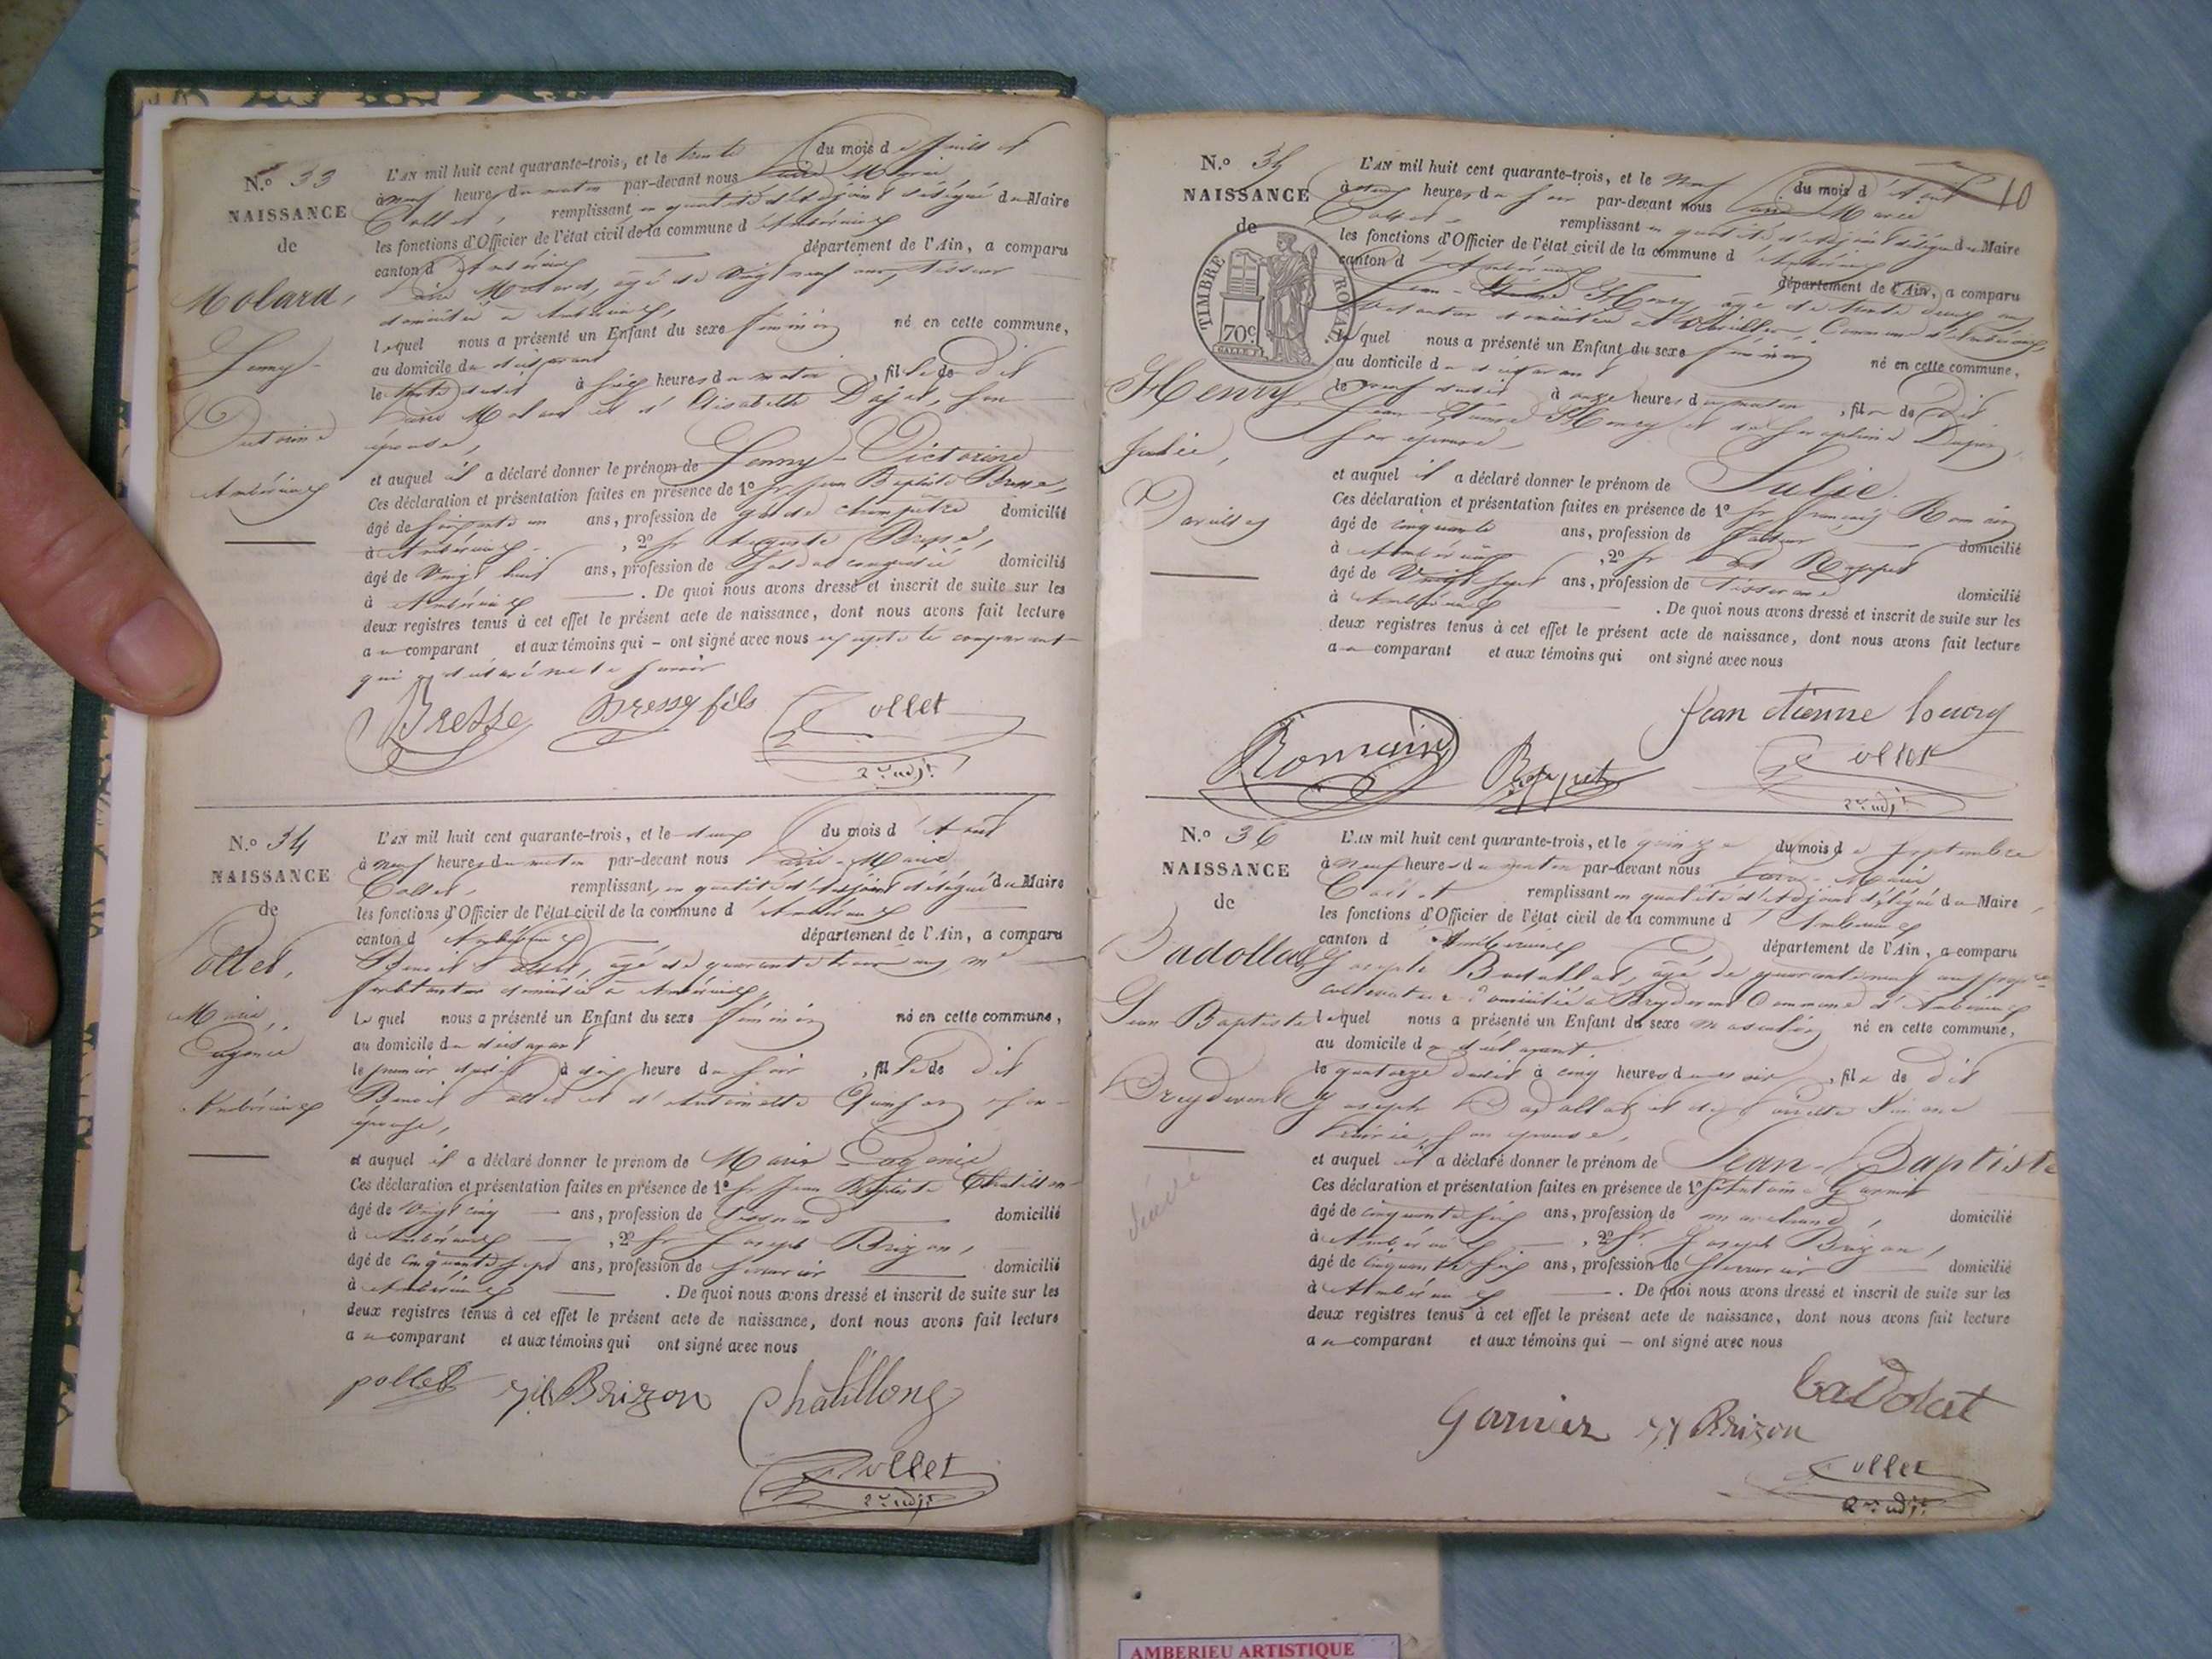 N.º 33
NAISSANCE
de
Molard,
Jenny-
Victorine
Ambérieux
L'AN mil huit cent quarante-trois, et le trente du mois d
à neuf heures du matin par-devant nous Marie
Collet remplissant en qualité d'Adjoint délégué du Maire
les fonctions d'Officier de l'état civil de la commune d'Ambérieux
canton d'Ambérieux département de l'Ain, a comparu
Molard, âgé de Vingt neuf ans, Tisseur
domicilié à Ambérieux,
lequel nous a présenté un Enfant du sexe féminin né en cette commune,
au domicile du déclarant
le trente dudit à six heures du matin, fille de dit
Molard et d'Elisabeth son
épouse,
et auquel il a déclaré donner le prénom de Jenny-Victorine
Ces déclaration et présentation faites en présence de 1º Sr Jean Baptiste Bresse,
âgé de soixante un ans, profession de garde champêtre domicilié
à Ambérieux, 2º Sr Auguste
âgé de Vingt huit ans, profession de Soldat congédié domicilié
à Ambérieux. De quoi nous avons dressé et inscrit de suite sur les
deux registres tenus à cet effet le présent acte de naissance, dont nous avons fait lecture
au comparant et aux témoins qui – ont signé avec nous excepté le comparant
qui a déclaré ne le savoir
Bresse Bressy fils Collet
2me adjt
N.º 34
NAISSANCE
de
Pollet,
Marie
Eugénie
Ambérieux
L'AN mil huit cent quarante-trois, et le deux du mois d'Avril
à neuf heures du matin par-devant nous Marie
Collet, remplissant en qualité d'Adjoint délégué du Maire
les fonctions d'Officier de l'état civil de la commune d'Ambérieux
canton d'Ambérieux département de l'Ain, a comparu
Benoit Pollet, âgé de quarante trois ans, md
ferblantier domicilié à Ambérieux,
lequel nous a présenté un Enfant du sexe féminin né en cette commune,
au domicile du déclarant
le premier dudit à dix heure du soir, fille de dit
Benoit Pollet et d'Antoinette son
épouse,
et auquel il a déclaré donner le prénom de Marie-Eugénie
Ces déclaration et présentation faites en présence de 1º Sr Jean Baptiste Chatillon
âgé de Vingt cinq ans, profession de Tisserand domicilié
à Ambérieux, 2º Sr Joseph Brizon,
âgé de cinquante sept ans, profession de serrurier domicilié
à Ambérieux. De quoi nous avons dressé et inscrit de suite sur les
deux registres tenus à cet effet le présent acte de naissance, dont nous avons fait lecture
au comparant et aux témoins qui ont signé avec nous
pollet Brizon Chatillong
Collet
2me adjt
10
N.º 35
NAISSANCE
de
TIMBRE ROYAL
70c
Henry
Julie,
Vareilles
L'AN mil huit cent quarante-trois, et le Neuf du mois d'Avril
à heures du soir par-devant nous Marie
Collet remplissant en qualité d'Adjoint délégué du Maire
les fonctions d'Officier de l'état civil de la commune d'Ambérieux
canton d'Ambérieux département de l'Ain, a comparu
Jean-Etienne Henry, âgé de trente deux ans
domicilié à Vareilles, Commune d'Ambérieux,
lequel nous a présenté un Enfant du sexe féminin né en cette commune,
au domicile du déclarant
le neuf dudit à onze heures du matin, fille de dit
Jean-Etienne Henry et de Josephine
son épouse
et auquel il a déclaré donner le prénom de Julie.
Ces déclaration et présentation faites en présence de 1º Sr François Romain
âgé de cinquante ans, profession de facteur domicilié
à Ambérieux, 2º Sr
âgé de Vingt sept ans, profession de Tisserand domicilié
à Ambérieux. De quoi nous avons dressé et inscrit de suite sur les
deux registres tenus à cet effet le présent acte de naissance, dont nous avons fait lecture
au comparant et aux témoins qui ont signé avec nous
Jean etienne henry
Romain Collet
2me adjt
N.º 36
NAISSANCE
de
Badollat
Jean-Baptiste
Breydevent
L'AN mil huit cent quarante-trois, et le quinze du mois de septembre
à neuf heures du matin par-devant nous Marie
Collet remplissant en qualité d'Adjoint délégué du Maire
les fonctions d'Officier de l'état civil de la commune d'Ambérieux
canton d'Ambérieux département de l'Ain, a comparu
Joseph Badollat, âgé de quarante neuf ans prop.re
cultivateur domicilié à Breydevent Commune d'Ambérieux
lequel nous a présenté un Enfant du sexe masculin né en cette commune,
au domicile du déclarant.
le quatorze dudit à cinq heures du soir, fils de dit
Joseph Badollat et de
son épouse,
et auquel il a déclaré donner le prénom de Jean-Baptiste
Ces déclaration et présentation faites en présence de 1º Sr Antoine Garnier
âgé de cinquante six ans, profession de marchand, domicilié
à Ambérieux, 2º Sr Joseph Brizon,
âgé de cinquante six ans, profession de serrurier domicilié
à Ambérieux. De quoi nous avons dressé et inscrit de suite sur les
deux registres tenus à cet effet le présent acte de naissance, dont nous avons fait lecture
au comparant et aux témoins qui – ont signé avec nous
badolat
Garnier Brizon
Collet
2me adjt
AMBERIEU ARTISTIQUE